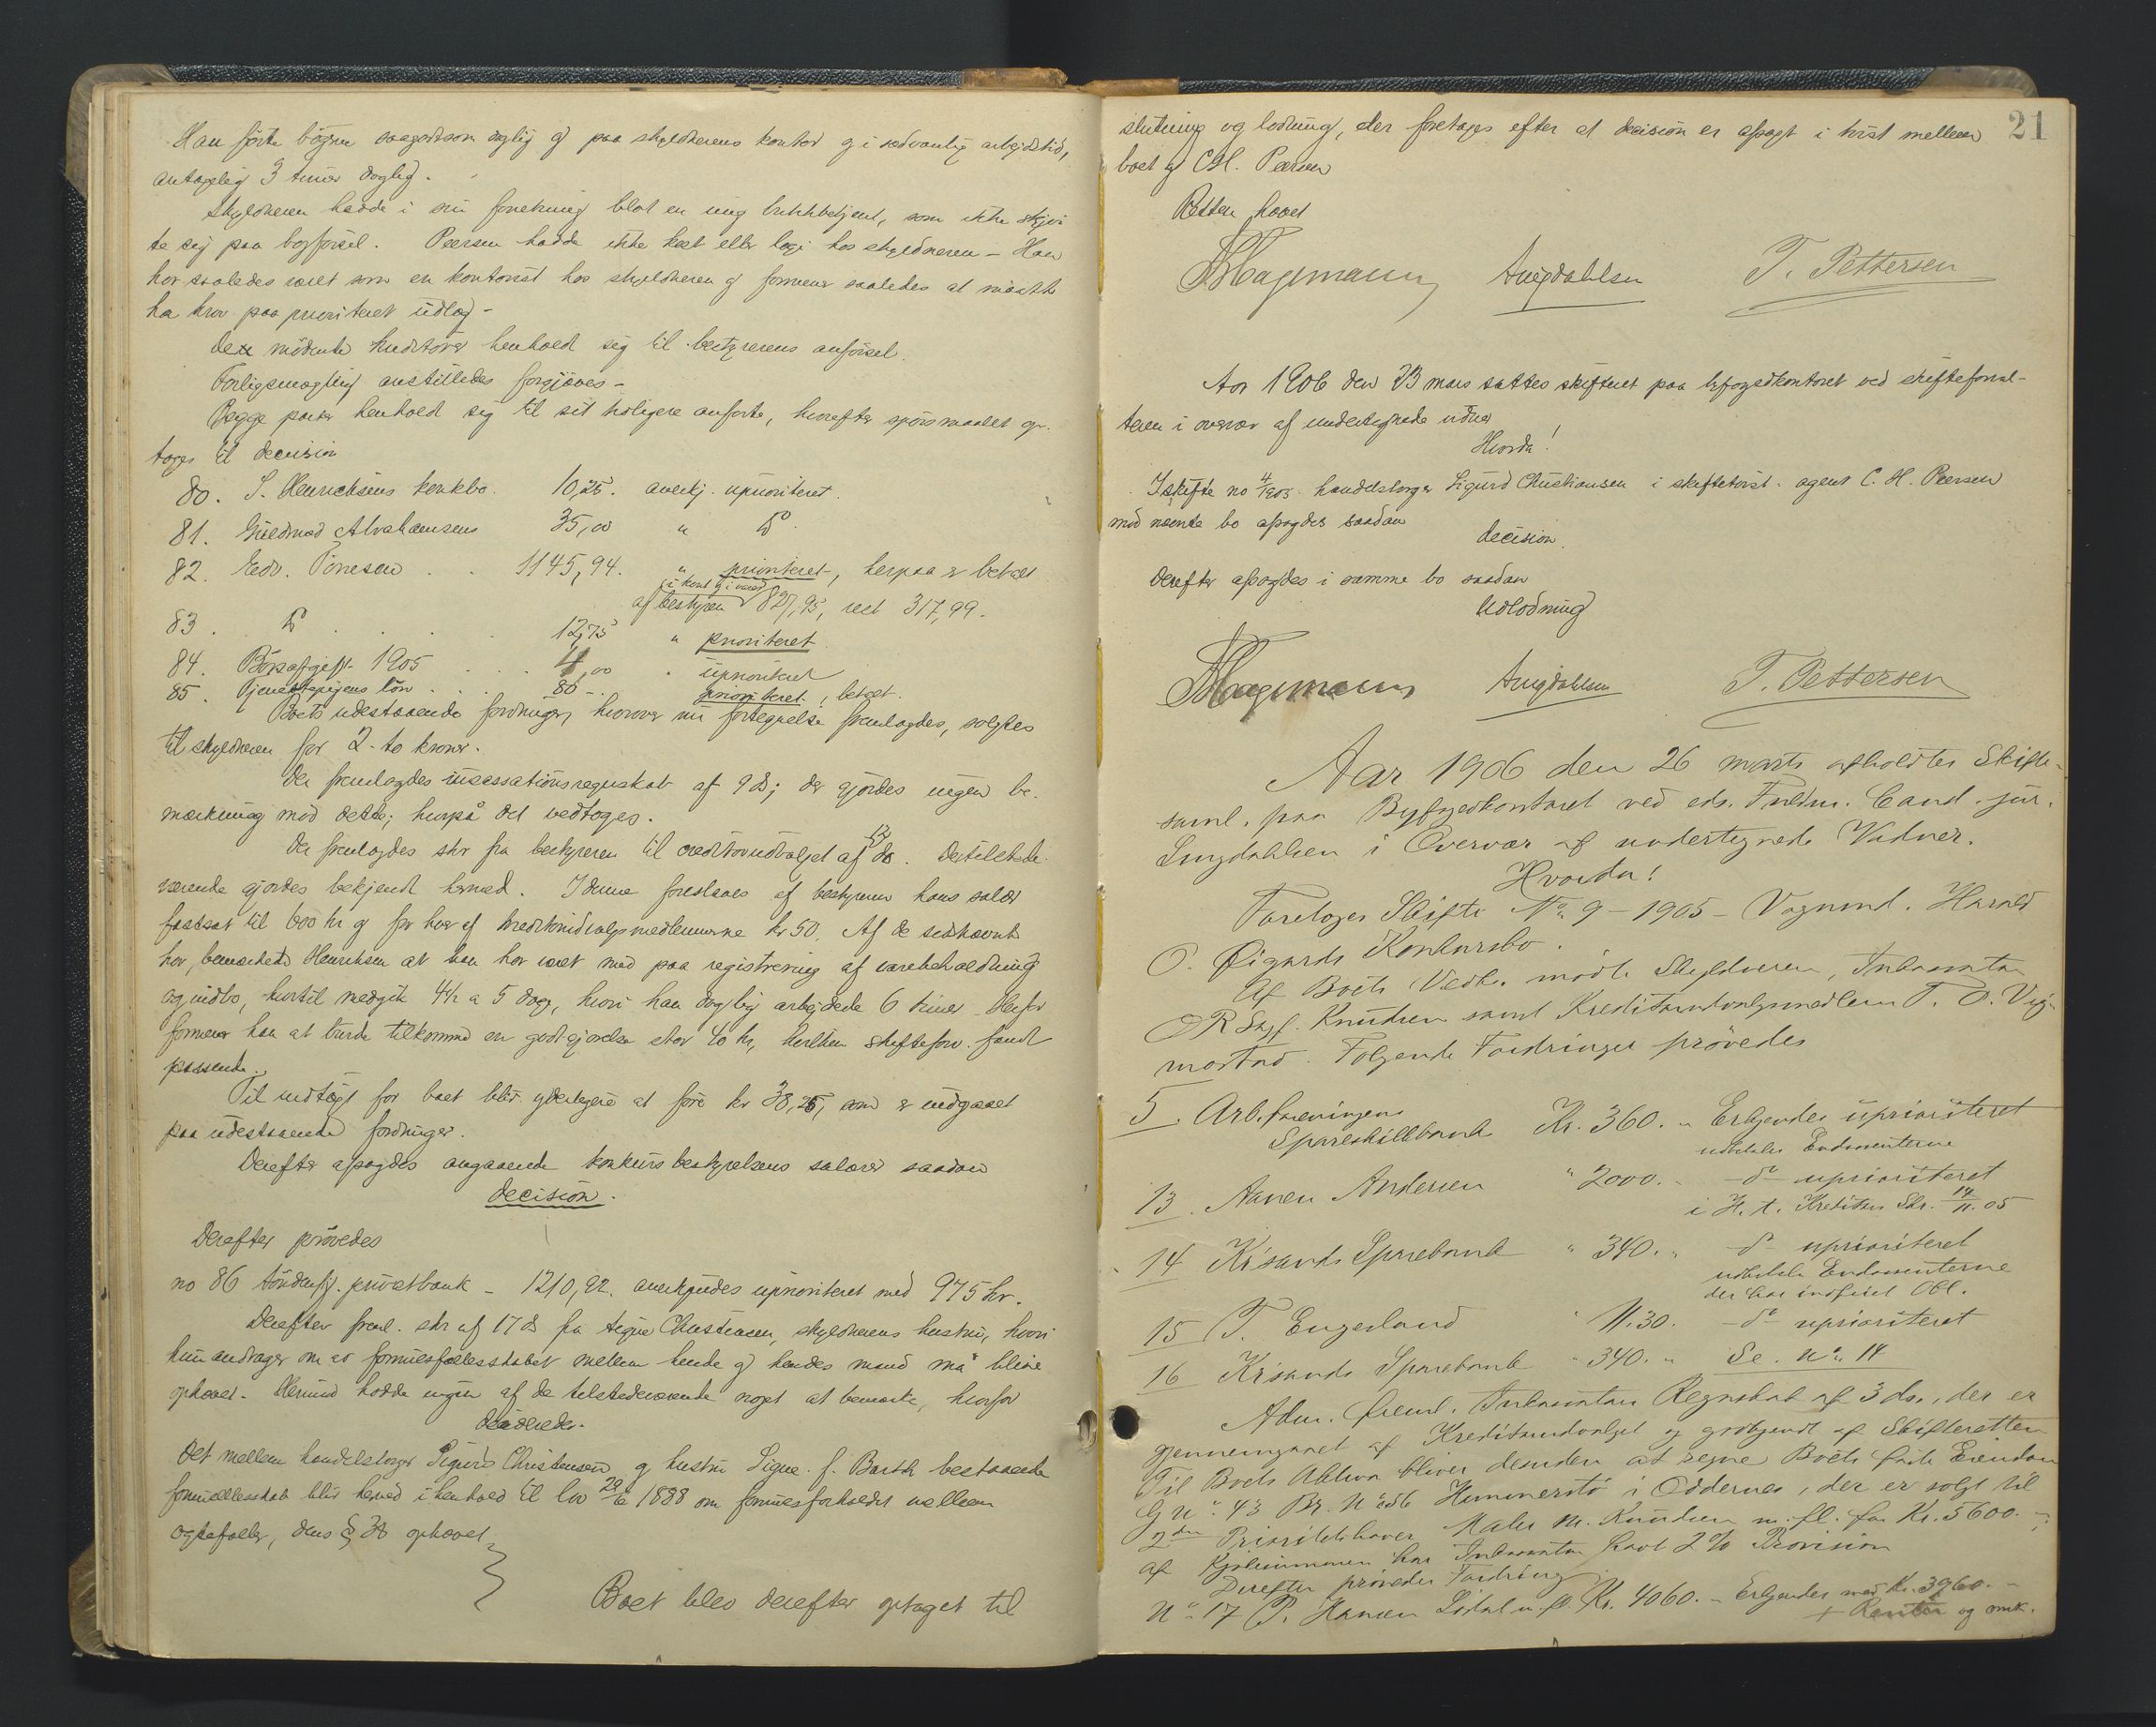 Han førte bøgene saagodtsom daglig og paa skyldnerens kontor og i sedvanlig arbejdstid,
antagelig 3 timer daglig.
Skyldneren hadde i sin forretning blot en ung butikbetjent, som ikke skjøt-
te sig paa bogførsel. Peersen hadde ikke kost eller logi hos skyldneren – Han
har saaledes været som en kontorist hos skyldneren og formener saaledes at maatte
ha krav paa prioritet udlæg –
De mødende kreditorer henholdt sig til bestyrerens anførsel.
Forligsmægling anstilledes forgjæves –
Begge parter henholdt sig til sit tidligere anførte, hvorefter spørsmaalet op-
toges til decision
80. S. Henrichsens konkbo. 10,25. anerkj. uprioriteret.
81. Guldsmed Abrahamsens 35,00 " do.
82. Edv. Tønesen . . 1145,94. " prioriteret, herpaa er betalt
i kont og i varer
af bestyren 827,95, rest 317,99.
83. do . . . . 12,75 " prioriteret
84. Børsafgift 1905 . . . 4,00 " uprioriteret
85. Tjenestepigens løn . . . 80 – prioriteret, betalt.
Boets udestaaende fordringer, hvorover nu fortegnelse fremlagdes, solgtes
til skyldneren for 2 – to kroner.
Der fremlagdes incassationsregnskab af 9 ds; der gjordes ingen be-
merkning mod dette; hvorpå det vedtoges.
Der fremlagdes skr fra bestyreren til creditorudvalget af 13 ds. De tilstede-
værende gjordes bekjendt hermed. I denne foreslaaes af bestyreren hans salær
fastsat til 600 kr og for hver af kreditorudvalgsmedlemmerne kr 50. Af de sidstnævnte
har, bemærkede Henrichsen at han har været med paa registrering af varebeholdning
og indbo, hertil medgik 4 1/2 a 5 dage, hvori han daglig arbejdede 6 timer. Herfor
formener han at burde tilkomme en godtgjørelse stor 40 kr, hvilken skifteforv. fandt
passende.
Til indtægt for boet blir yderligere at føre kr 38,25, som er indgaaet
paa udestaaende fordringer.
Derefter afsagdes angaaende konkursbestyrelsens salærer saadan
decision.
Derefter prøvedes
no 86 Søndenfj. privatbank – 1210,92. anerkjendes uprioriteret med 975 kr.
Derefter freml. skr af 17 ds fra Signe Christiansen, skyldnerens hustru, hvori
hun andrager om at formuesfællesskabet mellem hende og hendes mand må blive
ophævet. Herimod hadde ingen af de tilstedeværende noget at bemærke, hvorfor
decideredes.
Det mellem handelsborger Sigurd Christiansen og hustru Signe f. Barth bestaaende
formuesfællesskab blir herved i henhold til lov 29/6 1888 om formuesforholdet mellem
ægtefæller, dens § 38 ophævet.
Boet blev derefter optaget til
21
slutning og lodning, der foretages efter at decision er afsagt i tvist mellem
boet og C. H. Peersen
Retten hævet
Hagemann Lingdahlsen T. Pettersen
Aar 1906 den 23 mars sattes skifteret paa byfogedkontoret ved skifteforval-
teren i overvær af undertegnede vidner
Hvorda!
I skifte no 4/1905 handelsborger Sigurd Christiansen i skiftetvist agent C. H. Peersen
mod nævnte bo afsagdes saadan
decision.
Derefter afsagdes i samme bo saadan
Udlodning
Hagemann Lingdahlsen T. Pettersen
Aar 1906 den 26 marts afholdtes Skifte-
saml. paa Byfogedkontoret ved eds. Fuldm. Cand. jur.
Lingdahlsen i Overvær af undertegnede Vidner.
Hvorda!
Foretoges Skifte No. 9 – 1905 – Vognmd. Harald
O. Øigards Konkursbo.
Af Boets Vedk. mødte Skyldneren, Inkassator
OR Sagf. Knudsen samt Kreditorudvalgsmedlem T. O. Vig-
mostad. Følgende Fordringer prøvedes
5. Arb.foreningens
Spareskillbank Kr. 360. " Erkjendes uprioriteret
udbetales Endossenterne
13. Aanen Andersen " 2000. " – do – uprioriteret
i H. t. Kreditors Skr. 14/11. 05
14 Krsands Sparebank " 340. " – do – uprioriteret
udbetales Endossenterne
der har indfriet Obl.
15 T. Engesland " 11.30. – do – uprioriteret
16 Krsands Sparebank " 340. " Se. No. 14
Adm. freml. Inkassators Regnskab af 3 ds., der er
gjennemgaaet af Kreditorudvalget og godkjendt af Skifteretten
Til Boets Aktiva bliver desuden at regne Boets faste Eiendom
G No. 43 Br. No. Hummerstø i Oddernes, der er solgt til
2den Prioritetshaver Maler M. Knudsen m. fl. for Kr. 5600. –;
af Kjøbesummen har Inkassator havt 2 % Provision
Derefter prøvedes Fordring
No. 17 P. Hansen Lidal m. fl. Kr. 4060. – Erkjendes med Kr. 3960. –
+ Renter og omk.